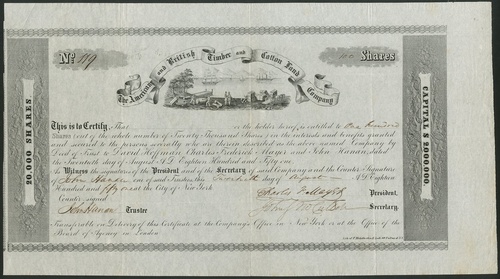 No. 119
100 Shares
The American and British Timber and Cotton Land Company
20,000 SHARES
CAPITAL $ 2000000.
This is to Certify, That is the holder hereof, is entitled to One Hundred
Shares (out of the whole number of Twenty Thousand Shares) in the interests and benefits granted
and secured to the persons severally who are therein described as the above named Company by
Deed of Trust to David Hoffman, Charles Frederick and John Hanan, dated
the day of August A.D. Eighteen Hundred and Fifty one.
As Witness the signature of the President and of the Secretary of said Company and the Counter Signature
of John Hanan one of said Trustees this day of August A.D. Eighteen
Hundred and fifty one at the City of New York
Counter signed
President,
John Hanan Trustee
Secretary.
Transferable on Delivery of this Certificate at the Company's Office in New York or at the Office of the
Board of Agency in London